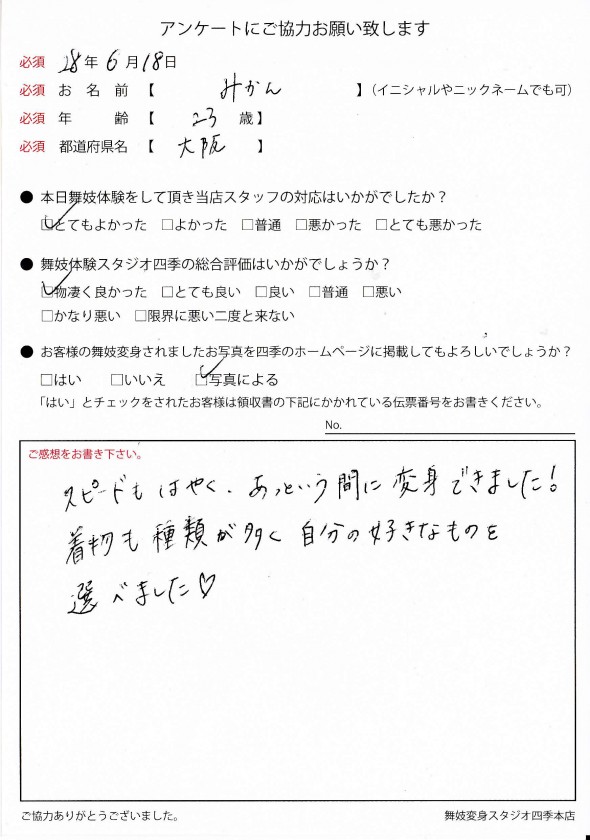 アンケートにご協力お願い致します
必須 28年6月18日
必須 お名前【 みかん 】(イニシャルやニックネームでも可)
必須 年齢【 23 歳】
必須 都道府県名【 大阪 】
● 本日舞妓体験をして頂き当店スタッフの対応はいかがでしたか?
☑とてもよかった □よかった □普通 □悪かった □とても悪かった
● 舞妓体験スタジオ四季の総合評価はいかがでしょうか?
☑物凄く良かった □とても良い □良い □普通 □悪い
□かなり悪い □限界に悪い二度と来ない
● お客様の舞妓変身されましたお写真を四季のホームページに掲載してもよろしいでしょうか?
□はい □いいえ ☑写真による
「はい」とチェックをされたお客様は領収書の下記にかかれている伝票番号をお書きください。
No.
ご感想をお書き下さい。
スピードもはやく、あっという間に変身できました!
着物も種類が多く自分の好きなものを
選べました♡
ご協力ありがとうございました。
舞妓変身スタジオ四季本店